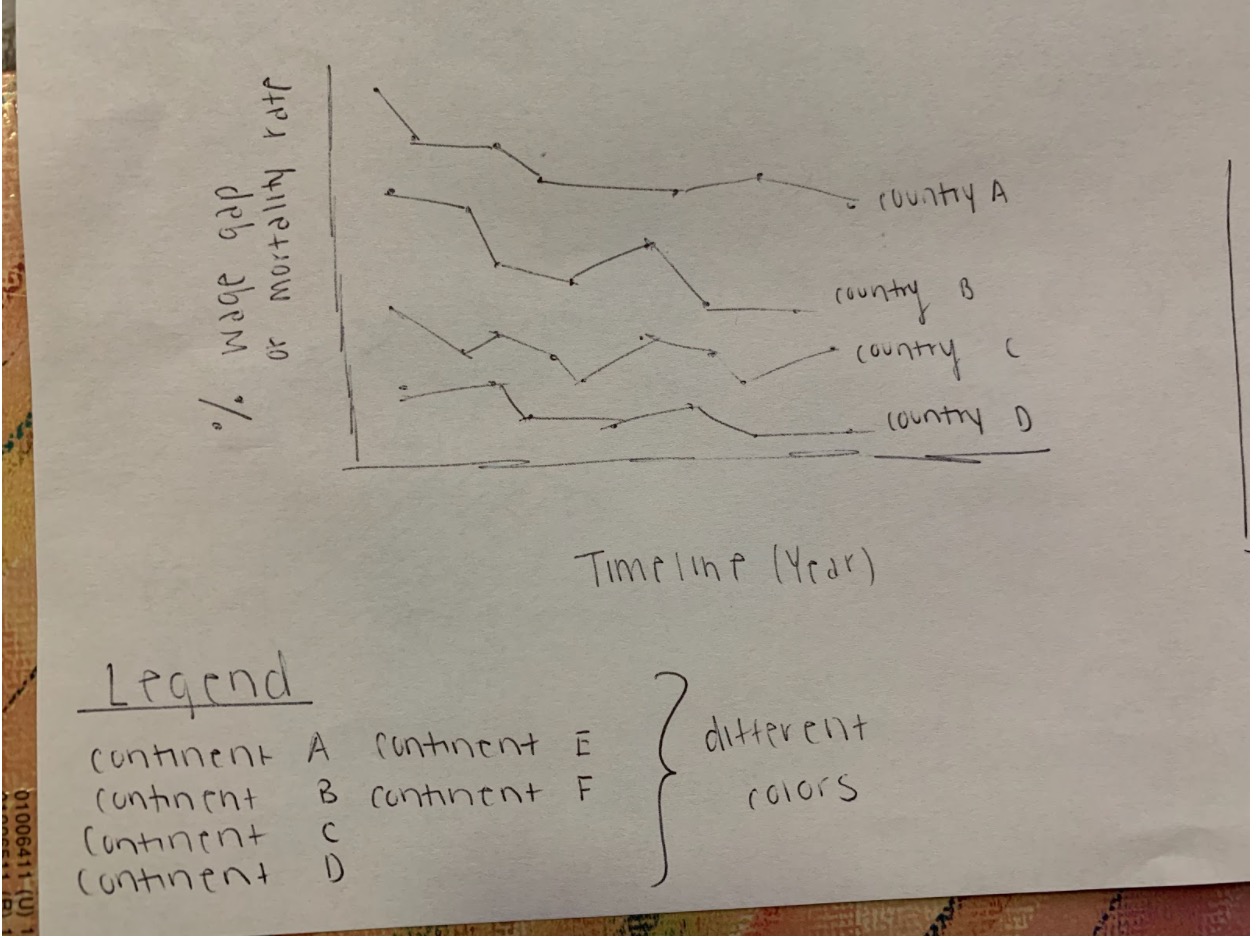 % wage gap
or mortality rate
country A
country B
country C
country D
Timeline (Year)
Legend
continent A continent E
continent B continent F
continent C
continent D
different
colors
01006411 (U) 1